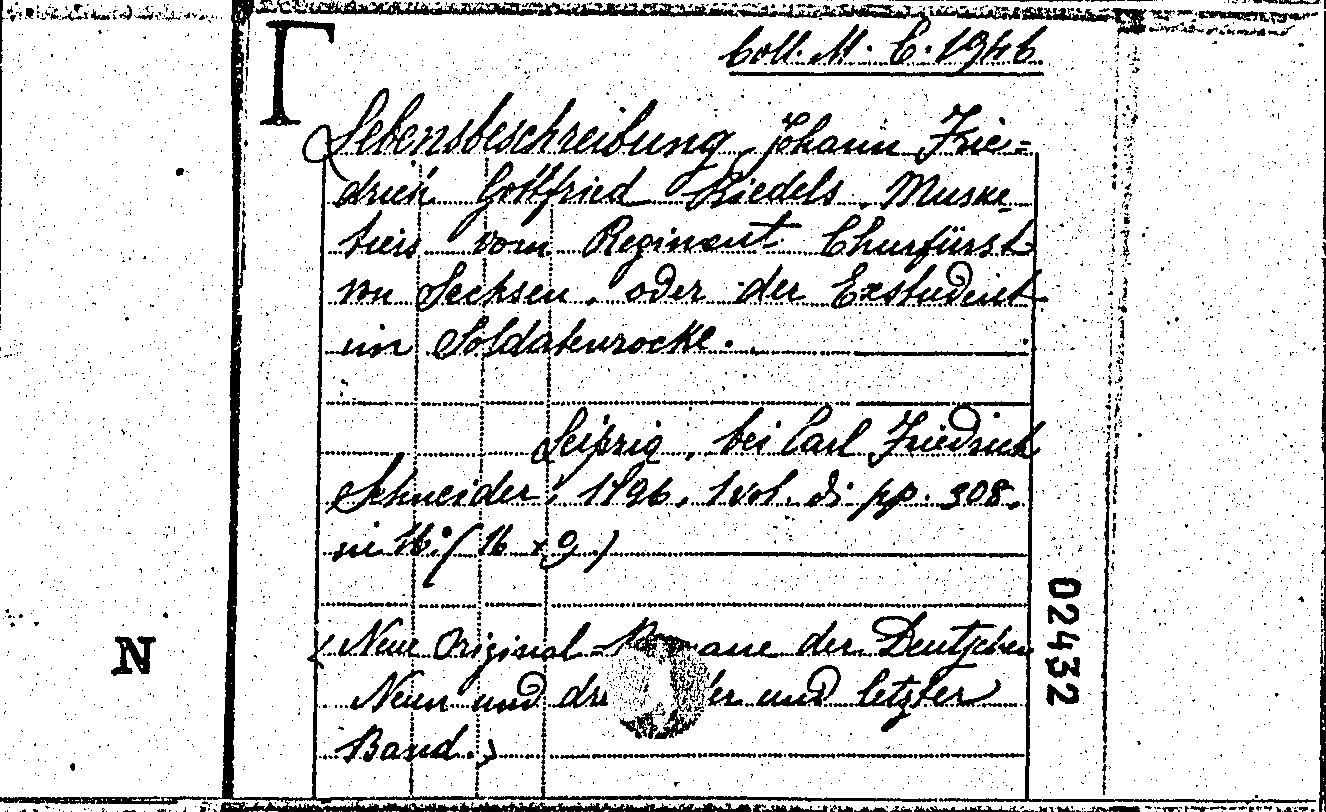 Coll. M. C. 1946.
Lebensbeschreibung Johann Frie=
drich Gottfried Riedels, Muske-
tiers vom Regiment Churfürst
von Sachsen, oder der Exstudent
im Soldatenrocke.
Leipzig, bei Carl Friedrich
Schneider, 1796, 1 vol. di pp. 308.
in 16º (16 x 9.)
(Neue Original- der Deutschen
Neun und und letzter
Band.)
N
02432